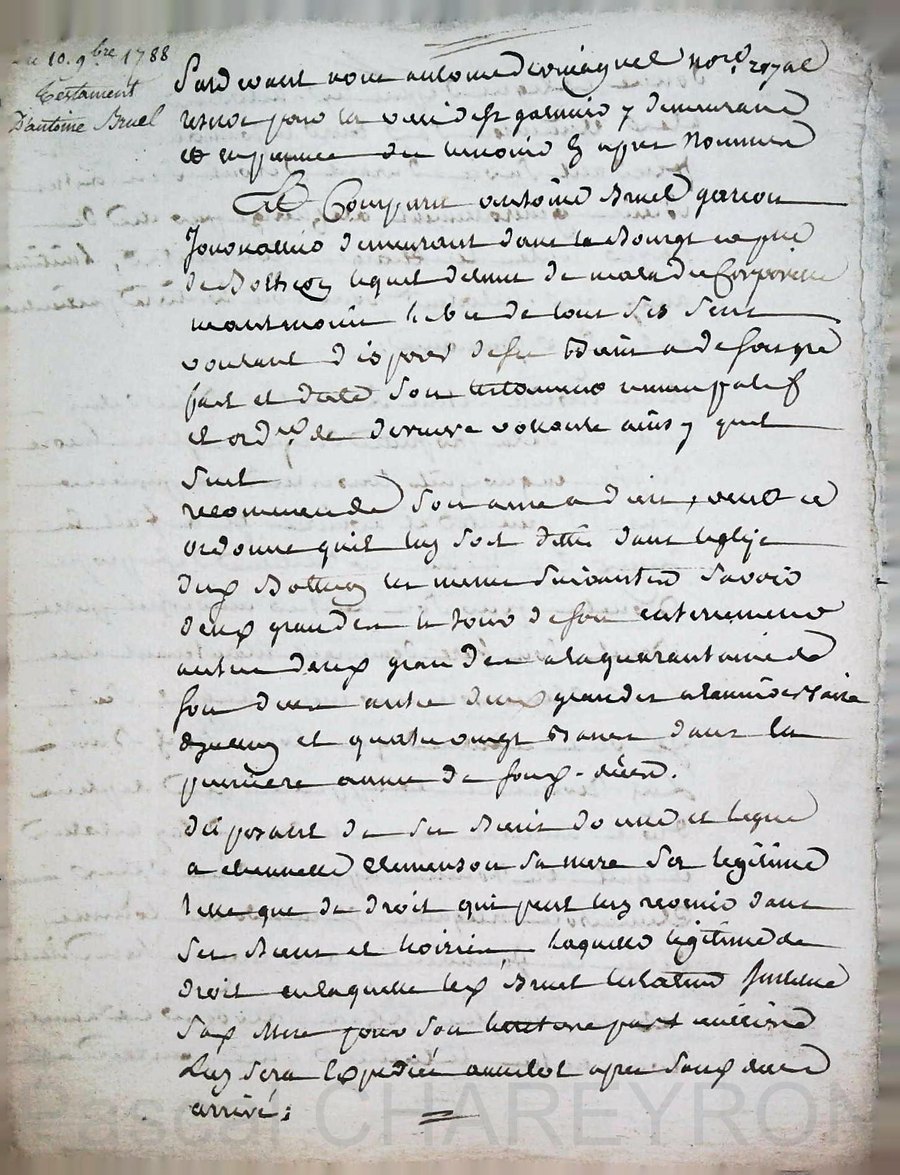 10. 9bre 1788
Testament
D'antoine Bruel
Pardevant nous antoine nore. royal
reservé pour la de st y demeurant
et en presence des temoins apres nommés
Est Comparu antoine Bruel garcon
demeurant dans le Bourg
de lequel detenu de maladie Corporelle
neantmoint de tout ses sens
voulant disposer de ses Biens a de son gré
fait et dicté son testament nuncupatif
et ordre. de derniere volonté ainsy quil
suit
recommendé son ame a dieu, veut et
ordonne quil luy soit dittes dans leglise
dud. les messes suivantes savoir
deux grandes le jour de son enterrement
autre deux grandes a la quarantaine de
son deces autre deux grandes a lanniversaire
et quatre vingt Basses dans la
premiere année de sond. deces.
disposant de ses Biens donne et legue
a Clemenson sa mere sa legitime
telle que de droit qui peut luy revenir dans
ses Biens et hoirie, laquelle legitime de
droit en laquelle led. Bruel testateur institue
sad. Mere pour son heritiere particuliere
Luy sera Expediée aussitot apres soud. deces
arrivé;
Pascal CHAREYRON